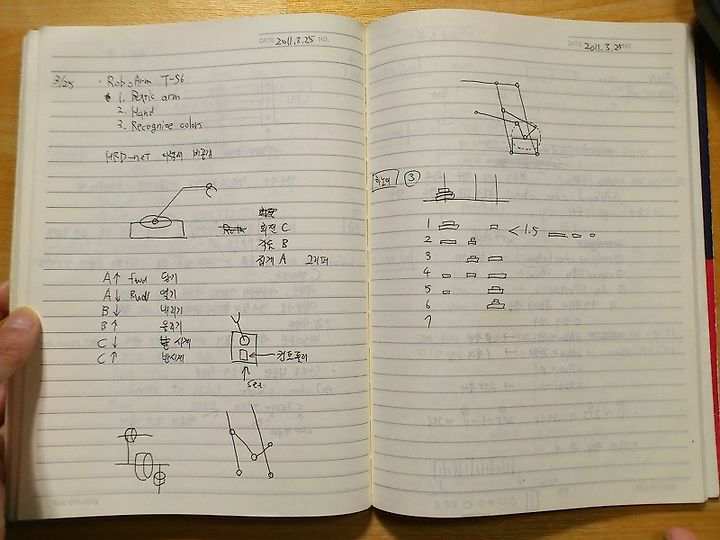 DATE 2011.3.25 NO.
3/25 · RoboArm T-56
1. Basic arm
2. Hand
3. Recognise colors
HRD-net
회전 C
각도 B
집게 A 그리퍼
A↑ fwd 닫기
A↓ Rwd 열기
B↓ 내리기
B↑ 올리기
C↓ 시계
C↑ 반시계
컴포트
DATE 2011.3.25 NO.
하노이 ③
1 < 1.5
2
3
4
5
6
7